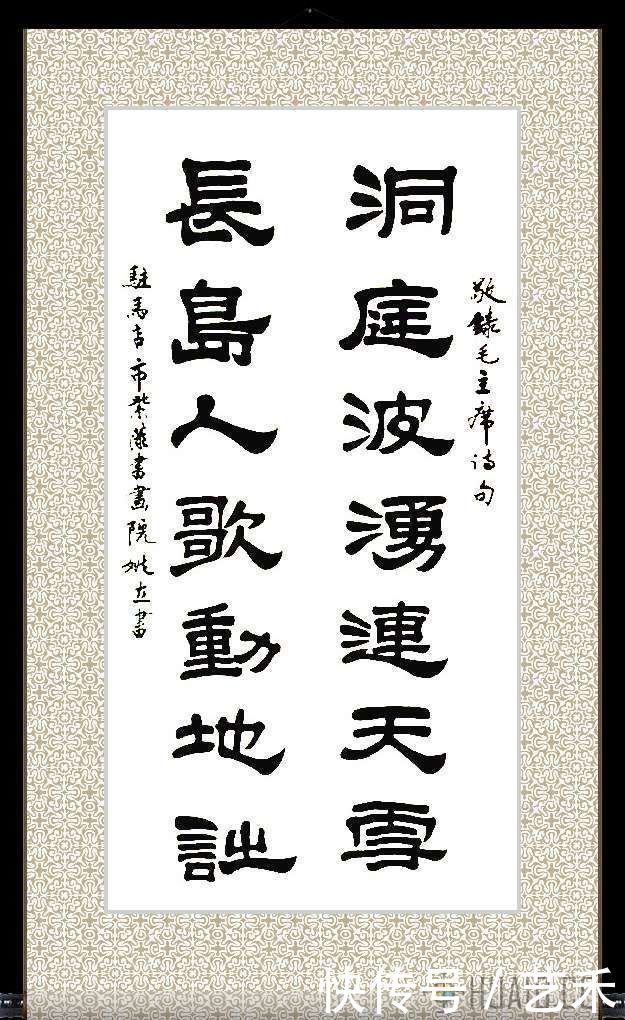 敬錄毛主席诗句
洞庭波湧連天雪
長島人歌動地詩
駐馬店市紫書畫院姚立書
快传号/艺禾